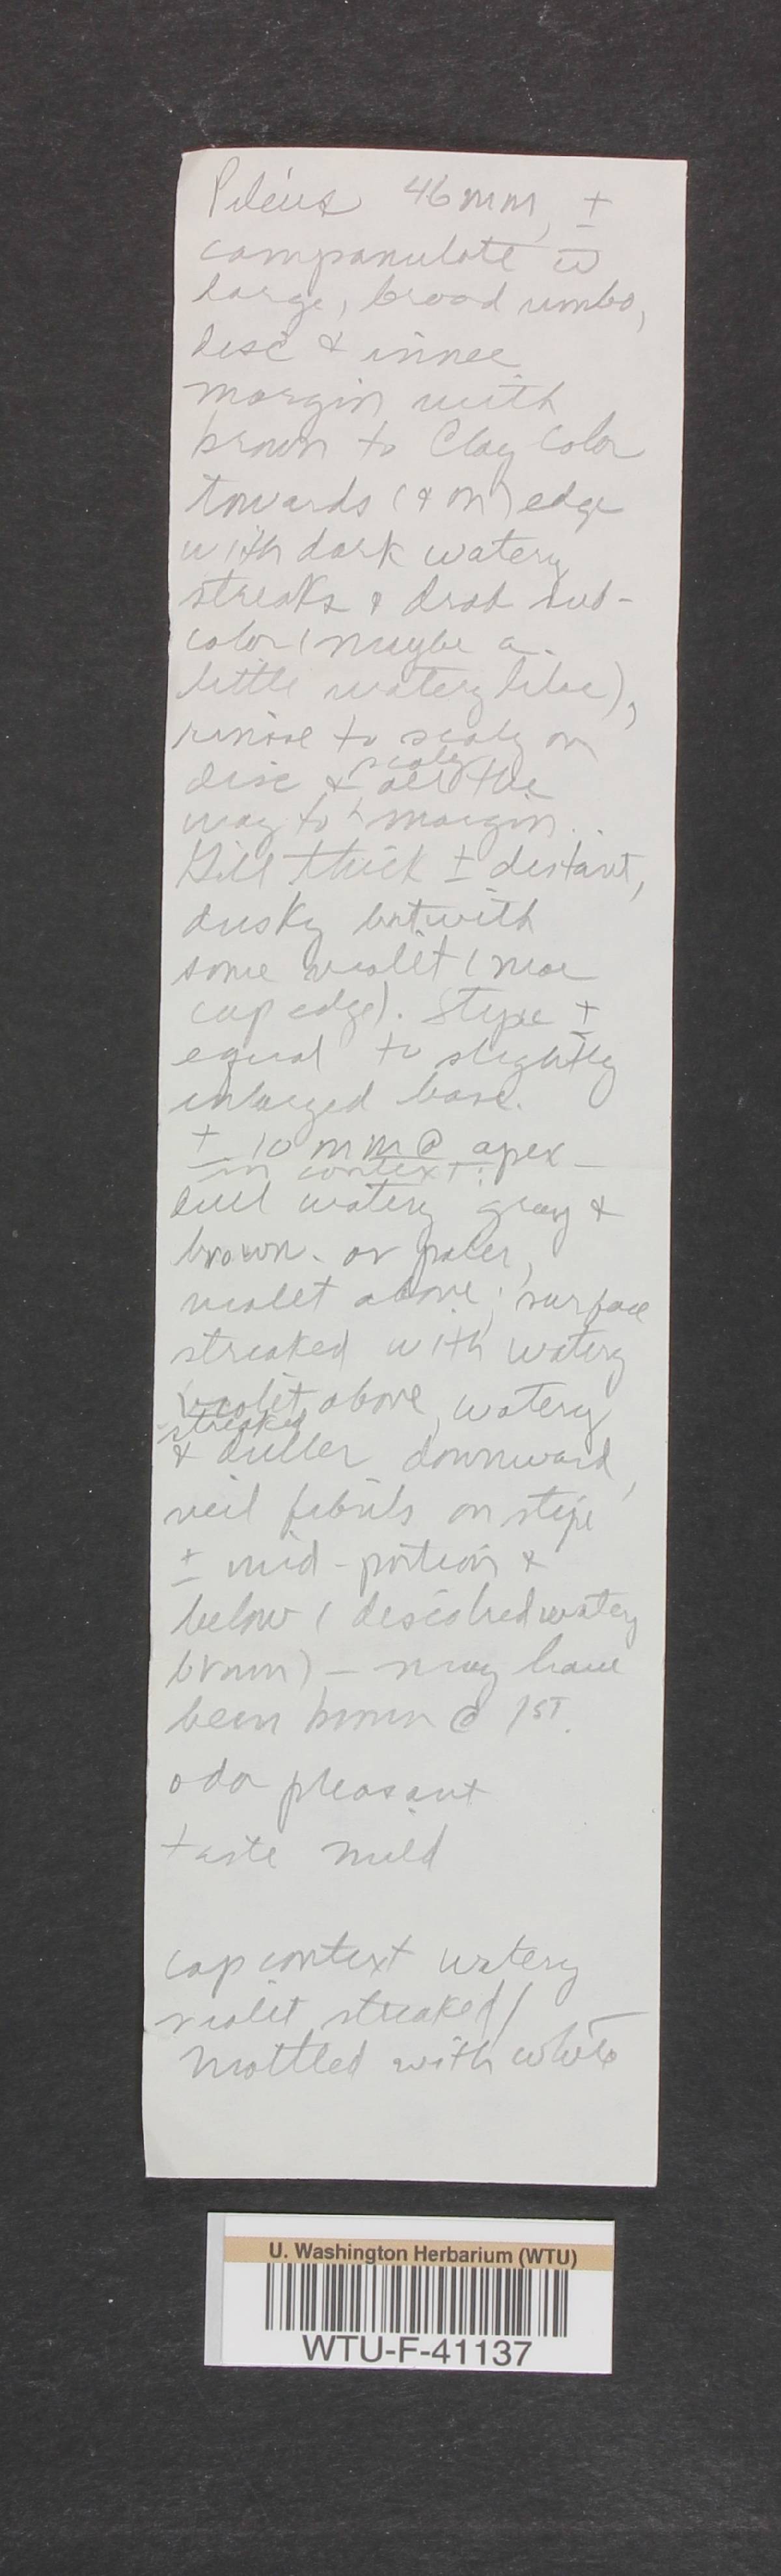 Pileus 46 mm, ±
campanulate w̄
large, broad umbo,
disc & inner
margin with
brown to Clay Color
towards (& on) edge
with dark watery
streaks & drab sub-
color (maybe a
little watery lilac),
to scaly on
disc & all the
scaly
way to margin.
Gill thick ± distant,
dusky but with
some violet (near
cap edge). Stipe ±
equal to slightly
enlarged base.
± 10 mm @ apex –
in context:
dull watery gray &
brown. or paler,
violet above; surface
streaked with watery
violet above, watery
streaked
& duller downward,
veil fibrils on stipe
± mid-portion &
below (discolored watery
brown) – may have
been brown @ 1ST.
odor pleasant
taste mild
cap context watery
violet streaked/
mottled with white
U. Washington Herbarium (WTU)
WTU-F-41137